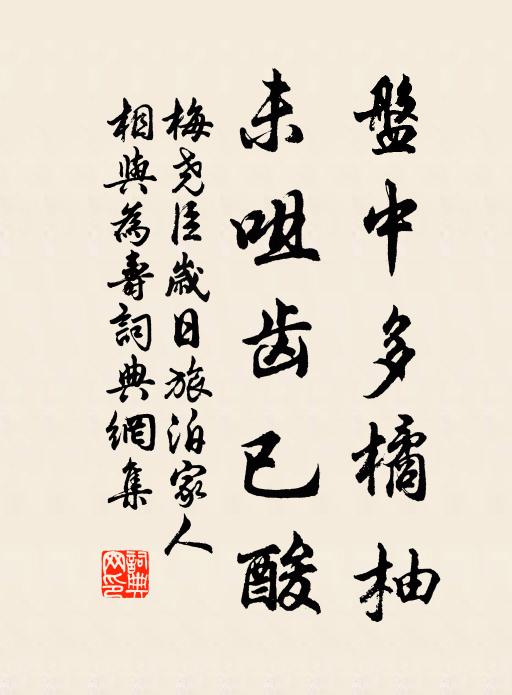 盤中多橘柚
未咀齿已酸
梅尧臣歲日旅泊家人
相與為壽詞典網集
詞典
网印